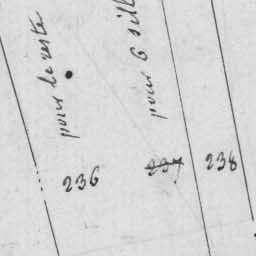 pour le reste
pour 6 sill
236
237
238